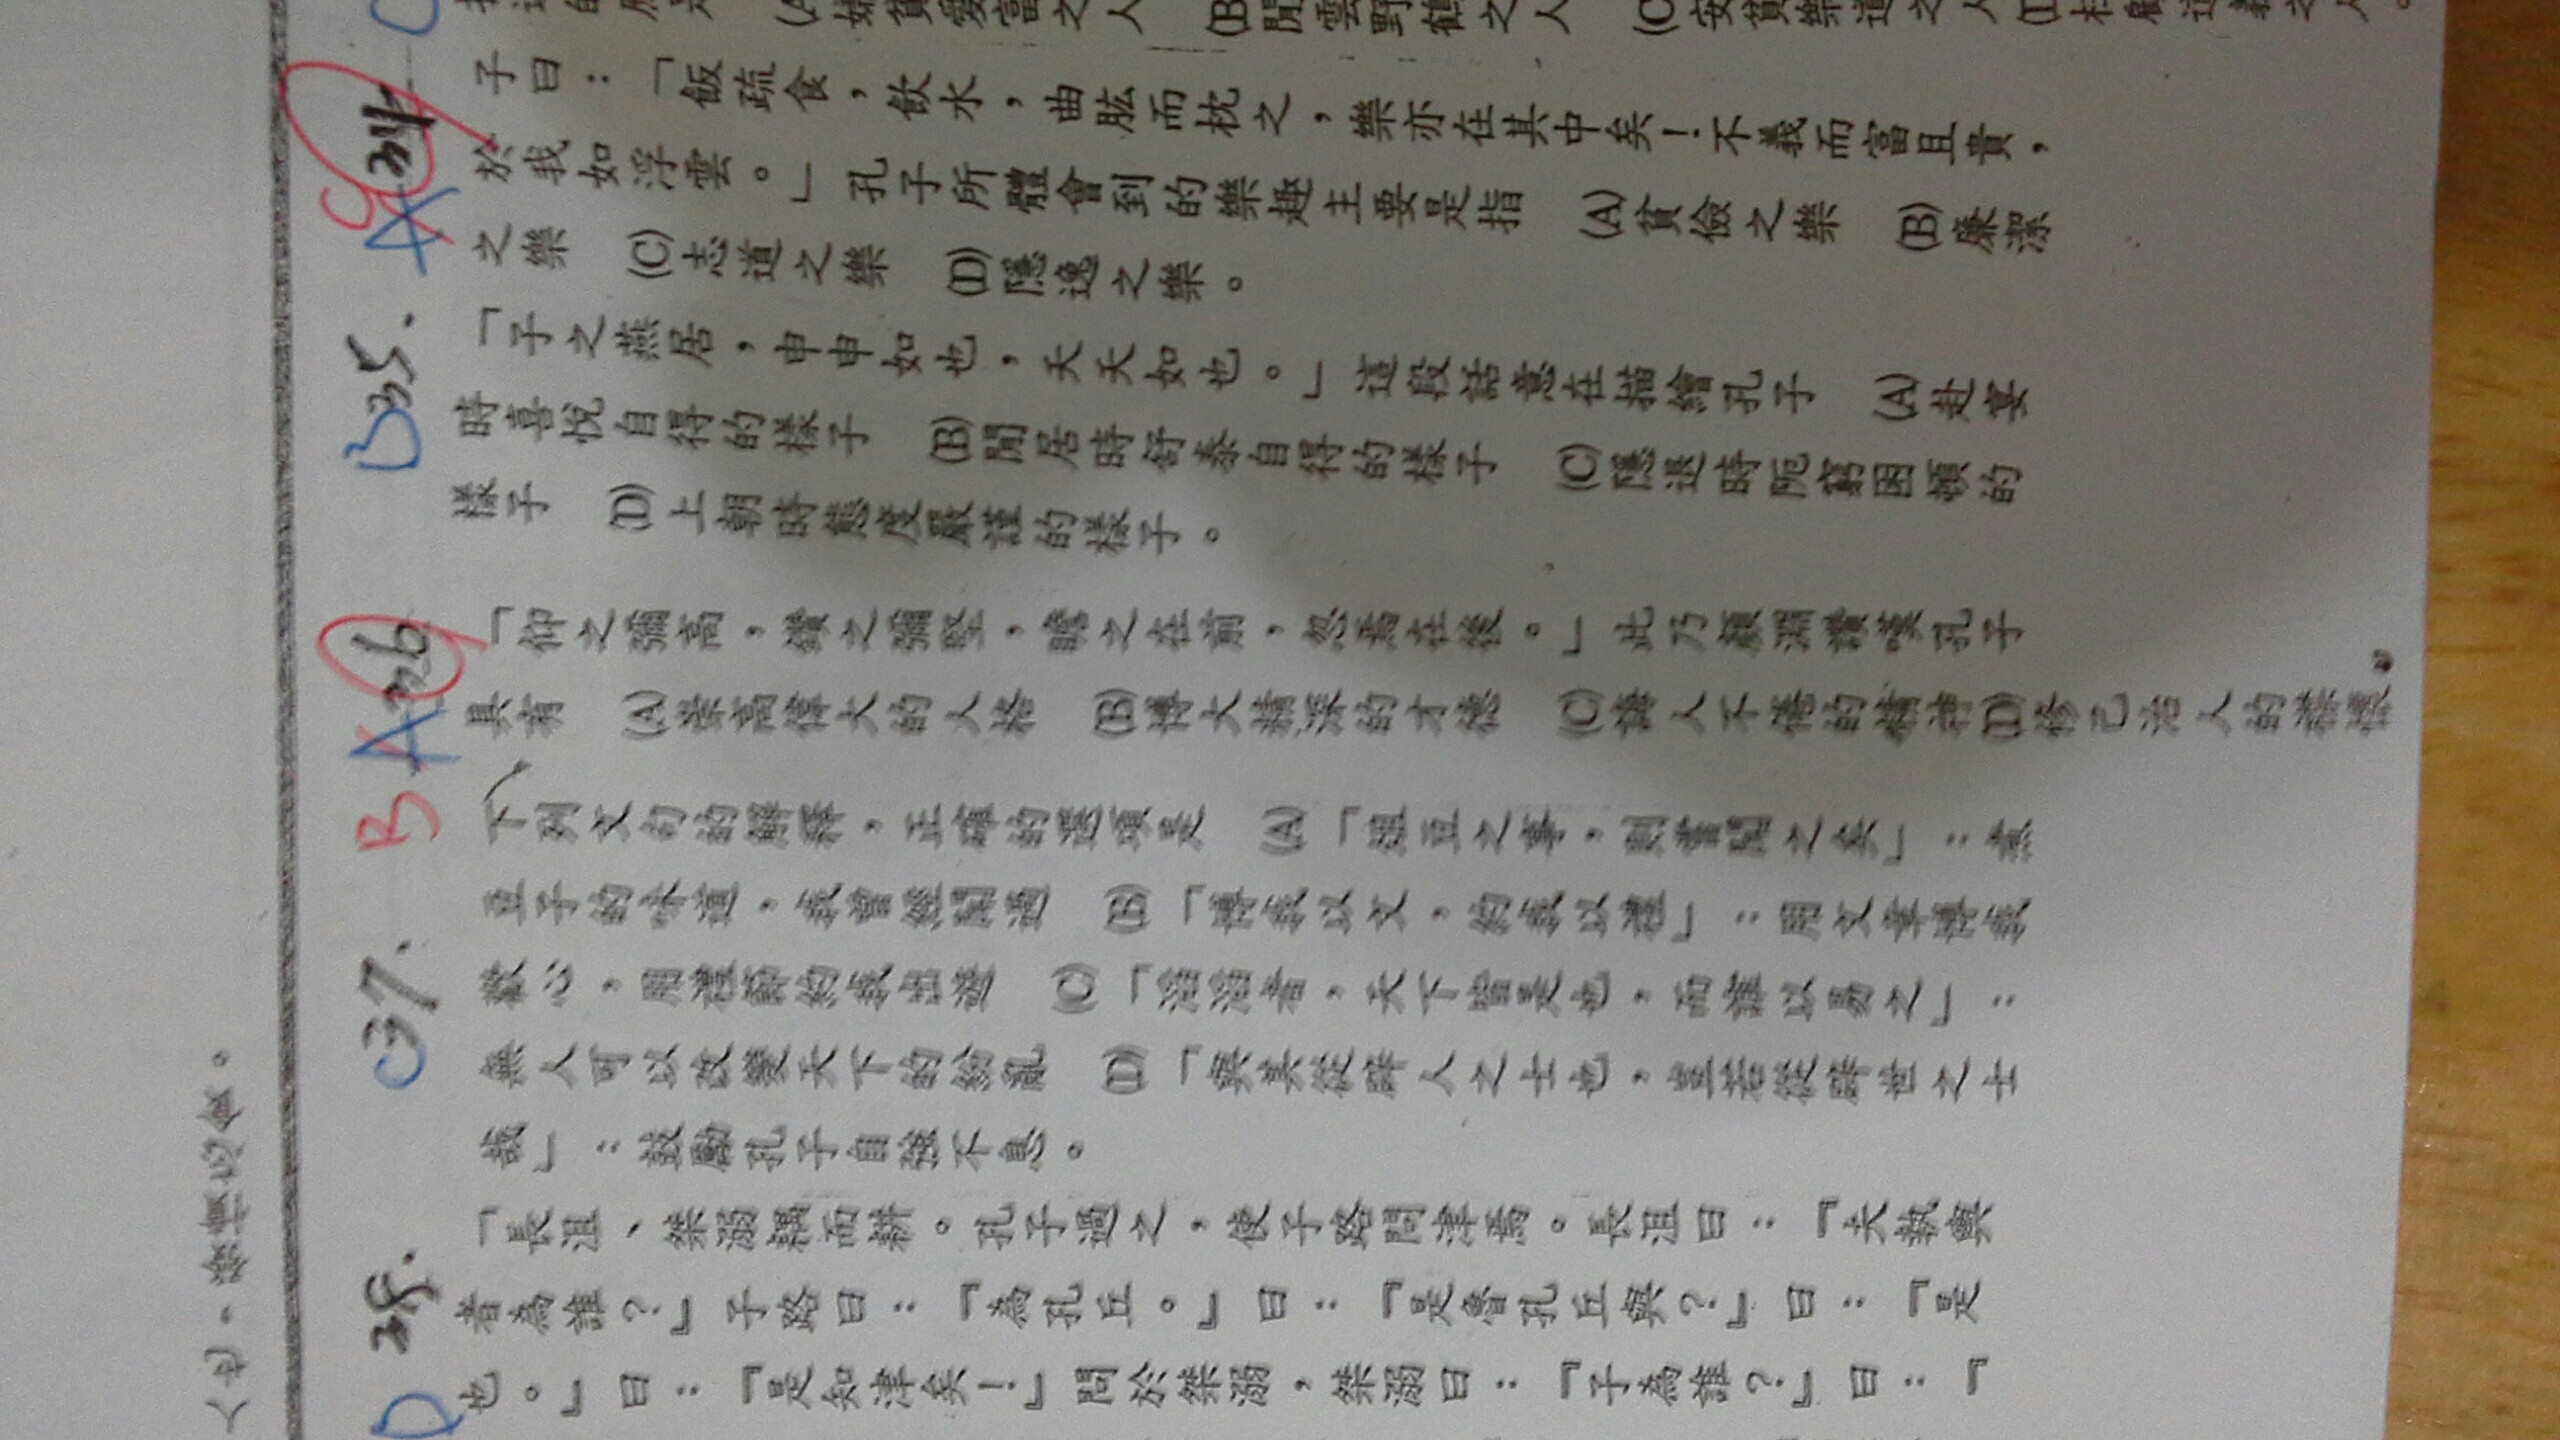 子曰：「飯疏食，飲水，曲肱而枕之，樂亦在其中矣！不義而富且貴，
於我如浮雲。」孔子所體會到的樂趣主要是指 (A)貧儉之樂 (B)廉潔
之樂 (C)志道之樂 (D)隱逸之樂。
B 35.
「子之燕居，申申如也，夭夭如也。」這段話意在描繪孔子 (A)赴宴
時喜悅自得的樣子 (B)閒居時舒泰自得的樣子 (C)隱退時阨窮困頓的
樣子 (D)上朝時態度嚴謹的樣子。
B A 36
「仰之彌高，鑽之彌堅，瞻之在前，忽焉在後。」此乃顏淵讚嘆孔子
具有 (A)崇高偉大的人格 (B)博大精深的才德 (C)誨人不倦的精神(D)修己治人的
C 37.
下列文句的解釋，正確的選項是 (A)「俎豆之事，則嘗聞之矣」：煮
豆子的味道，我曾經聞過 (B)「博我以文，約我以禮」：用文章博我
歡心，用禮節約我出遊 (C)「滔滔者，天下皆是也，而誰以易之」：
無人可以改變天下的紛亂 (D)「與其從辟人之士也，豈若從辟世之士
哉」：鼓勵孔子自強不息。
D 38.
「長沮、桀溺耦而耕。孔子過之，使子路問津焉。長沮曰：『夫執輿
者為誰？』子路曰：『為孔丘。』曰：『是魯孔丘與？』曰：『是
也。』曰：『是知津矣！』問於桀溺，桀溺曰：『子為誰？』曰：『